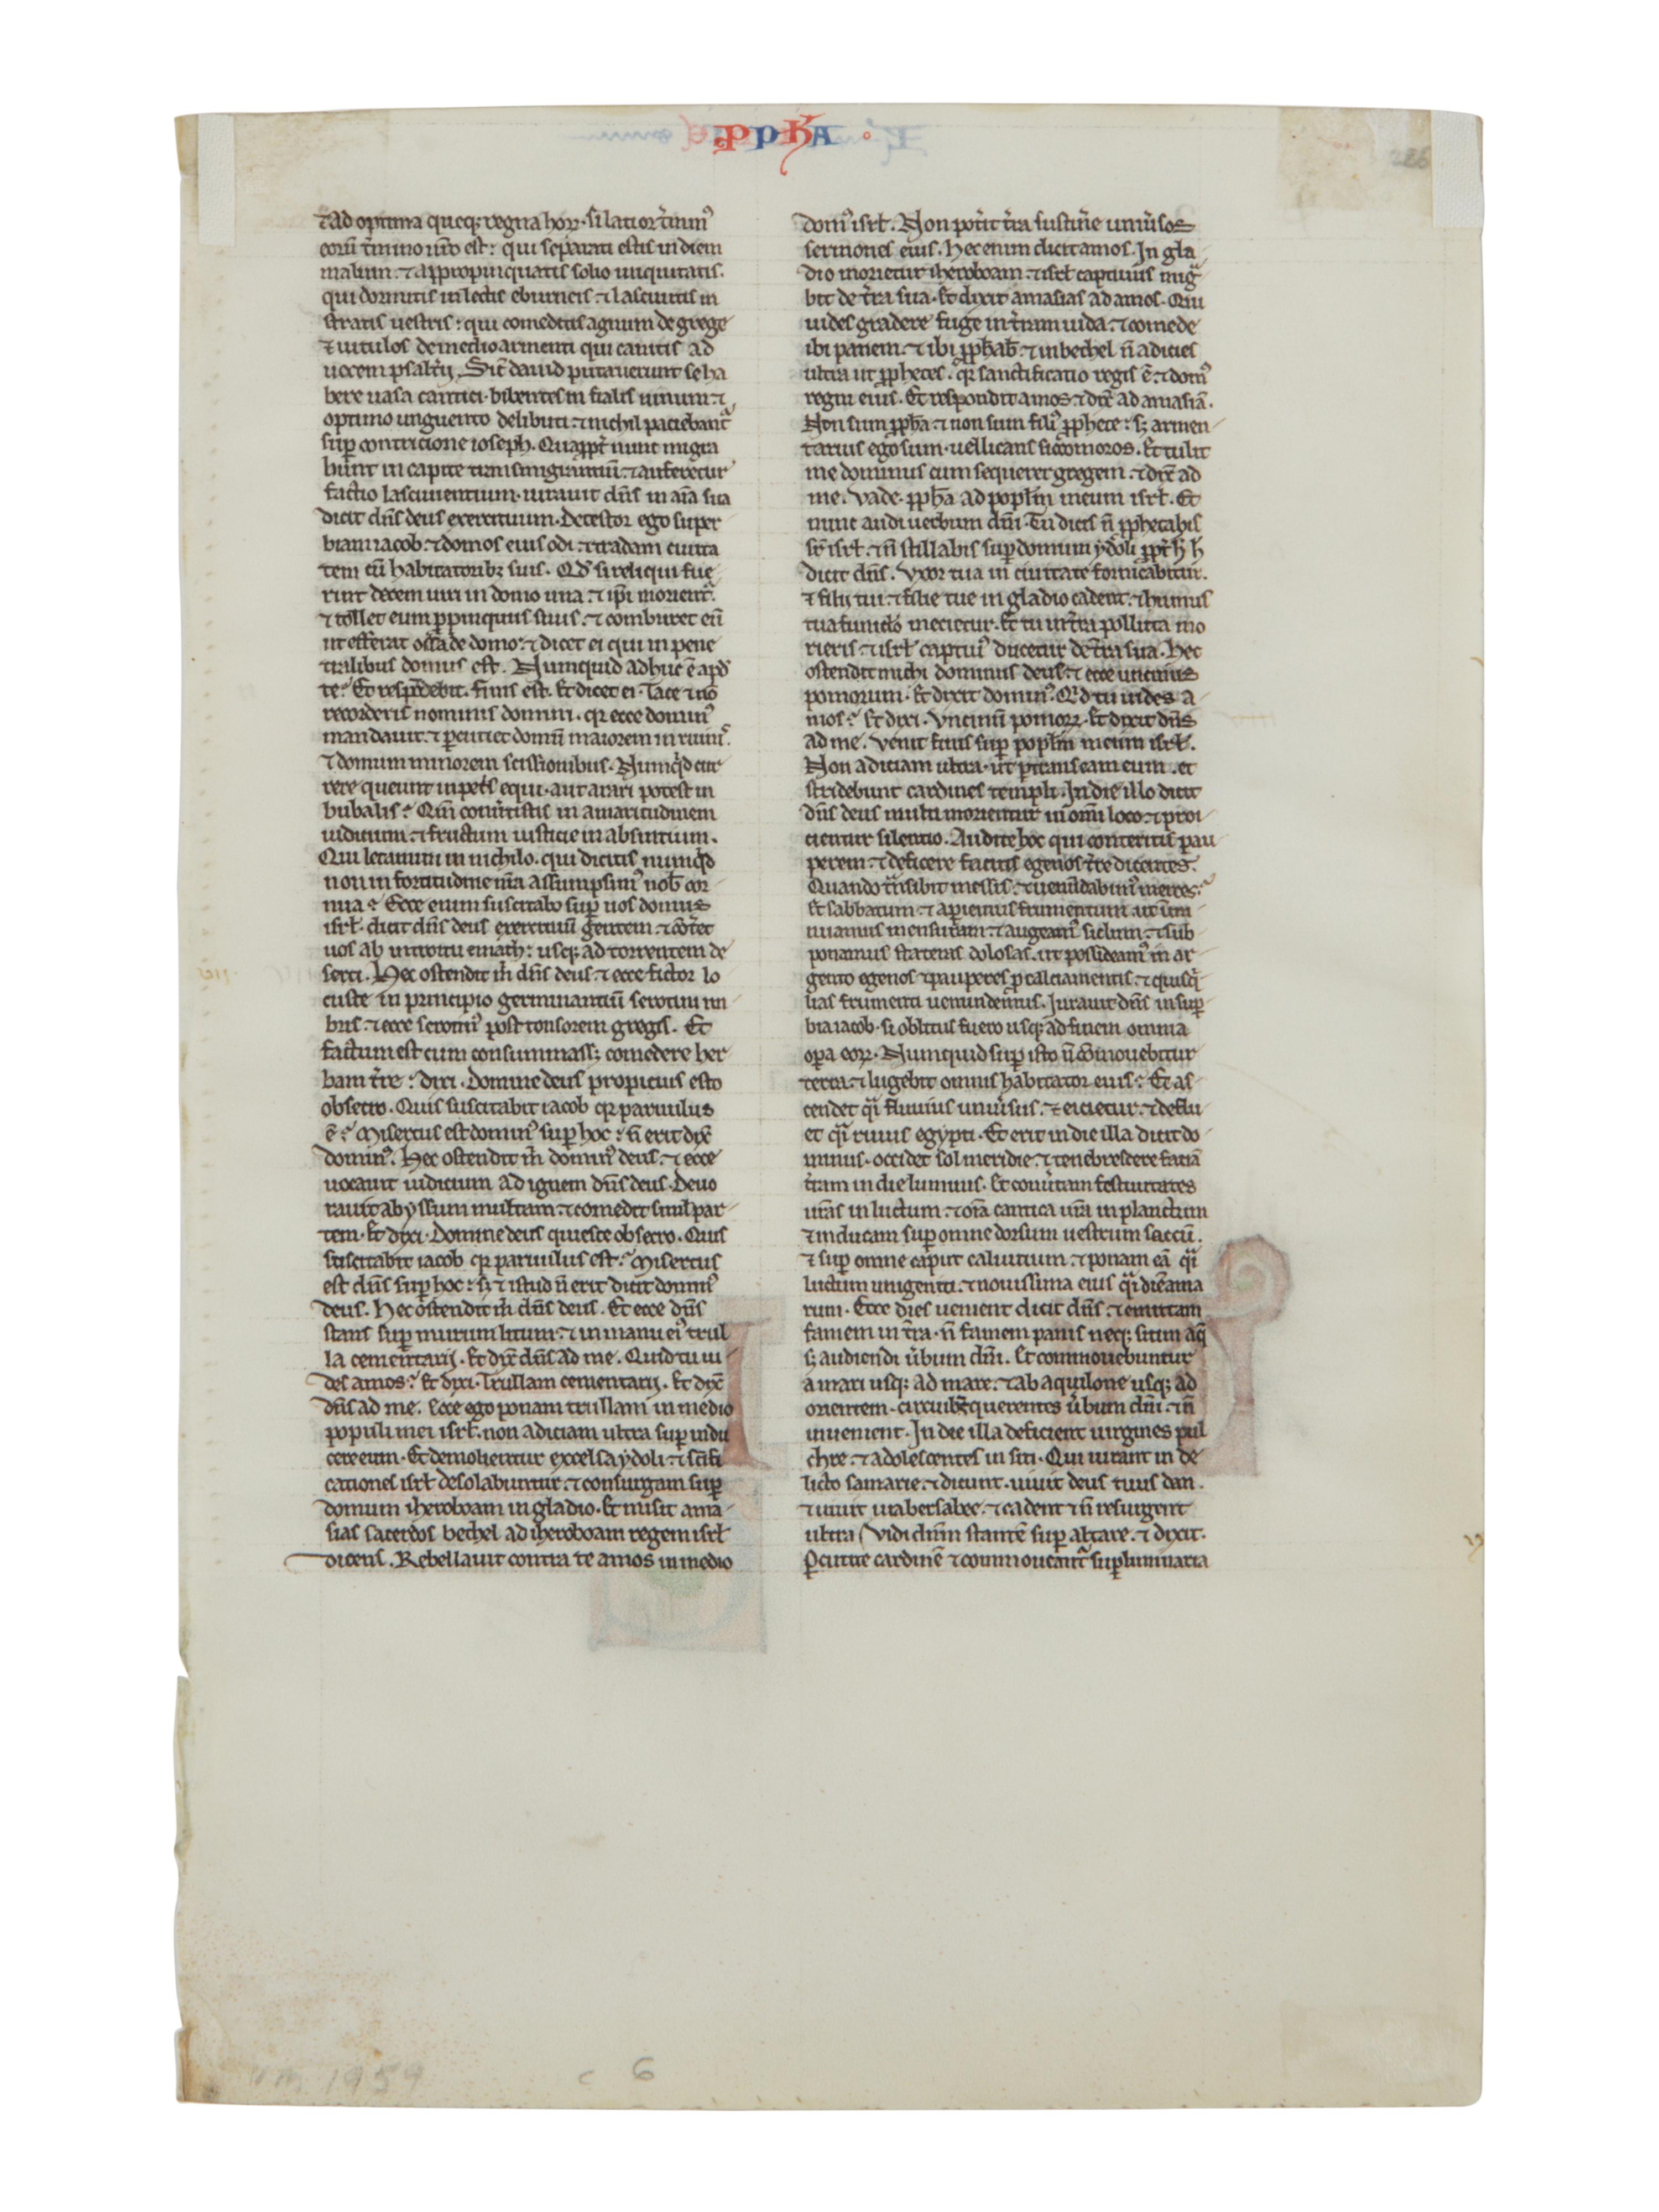 PPHA
⁊ad optima queq; regna horꝝ· si latior t̾min᷒
eorū t̾mino ur̄o est: qui separati estis in diem
malum· ⁊ appropinquatis solio iniquitatis·
qui dormitis in lectis eburneis· ⁊ lasciuitis in
stratis uestris: qui comeditis agnum de grege
⁊ uitulos de medio armenti qui canitis ad
uocem psalt̾ii. Sic̄ dauid putauerunt se ha
bere uasa cantici· bibentes in fialis uinum ⁊
optimo unguento delibuti: ⁊ nichil paciebanť
sup̲ contricione ioseph. Quapp̲t̾ nunc migra
bunt in capite transmigrantiū: ⁊ auferetur
factio lasciuientium· iurauit dn̄s in aīa sua
dicit dn̄s deus exercituum· Detestor ego super
biam iacob: ⁊ domos eius odi: ⁊ tradam ciuita
tem cū habitatorib; suis· Qd̄ si reliqui fue
rint decem uiri in domo una: ⁊ ip̄i morient̾.
⁊ tollet eum p̲pinquus suus: ⁊ comburet eū
ut efferat ossa de domo: ⁊ dicet ei qui in pene
tralibus domus est. Numquid adhuc ē apd̄
te? Et respōdebit. finis est· Et dicet ei· Tace ⁊ nō
recorderis nominis domini· qr ecce domin᷒
mandauit: ⁊ p̲cutiet domū maiorem in ruinis.
⁊ domum minorem scissionibus· Numqd̾ cur
rere queunt in pet̾s equi· aut arari potest in
bubalis? Qm̄ conu̾tistis in amaritudinem
iudicium: ⁊ fructum iusticie in absintium.
Qui letamini in nichilo· qui dicitis numqd̾
non in fortitudine nr̄a assumpsim᷒ nob̄ cor
nua? Ecce enim suscitabo sup̲ uos domus
isrł· dicit dn̄s deus exercituū gentem: ⁊ cōt̾et
uos ab introitu emath: usq; ad torrentem de
serti. Hec ostendit m̄ dn̄s deus: ⁊ ecce fictor lo
custe in principio germinantiū serotini im
bris: ⁊ ecce serotin᷒ post tonsorem gregis. Et
factum est cum consummass; comedere her
bam t̾re: dixi· domine deus propicius esto
obsecro· Quis suscitabit iacob qr paruulus
ē? Misertus est domin᷒ sup̲ hoc: n̄ erit dix̄
domin᷒. Hec ostendit m̄ domin᷒ deus: ⁊ ecce
uocauit iudicium ad ignem dn̄s deus· Deuo
rauit abyssum multam: ⁊ comedit simul par
tem· Et dixi· Domine deus quiesce obsecro· Quis
suscitabit iacob qr paruulus est? Misertus
est dn̄s sup̲ hoc: s; ⁊ istud n̄ erit dicit domin᷒
deus. Hec ostendit m̄ dn̄s deus. Et ecce dn̄s
stans sup̲ murum litum: ⁊ in manu ei᷒ trul
la cement̾arij. Et dix̄ dn̄s ad me. Quid tu ui
des amos? Et dixi· Trullam cementarij. Et dix̄
dn̄s ad me. Ecce ego ponam trullam in medio
populi mei isrł· non adiciam ultra sup̲ indu
cere eum· Et demolientur excelsa ydoli: ⁊ sc̄ifi
cationes isrł desolabuntur: ⁊ consurgam sup̲
domum iheroboam in gladio· Et misit ama
sias sacerdos bethel ad iheroboam regem isrł
dicens. Rebellauit contra te amos in medio
dom᷒ isrł. Non pot̾it t̾ra sustin̾e uniu̾sos
sermones eius. Hec enim dicit amos. In gla
dio morietur iheroboam: ⁊ isrł captiuus migᵃ
bit de t̾ra sua· Et dixit amasias ad amos· Qui
uides gradere fuge in t̾ram iuda: ⁊ comede
ibi panem: ⁊ ibi p̲ph̄ab̄: ⁊ in bethel n̄ adicies
ultra ut p̲phetes· qr sanctificatio regis ē: ⁊ dom᷒
regni eius. Et respondit amos ⁊ dix̄ ad amasiā.
Non sum p̲ph̄a: ⁊ non sum fili᷒ p̲phete: s; armen
tarius ego sum· uellicans sicomoros. Et tulit
me dominus cum sequerer gregem: ⁊ dix̄ ad
me. Vade· p̲ph̄a ad popłm meum isrł. Et
nunc audi uerbum dn̄i· Tu dicis n̄ p̲phetabis
sr̄ isrł: ⁊ n̄ stillabis sup̲ domum ydoli p̲pt̾ h̄ h̄
dicit dn̄s. Vxor tua in ciuitate fornicabitur.
⁊ filij tui: ⁊ filie tue in gladio cadent: ⁊ humus
tua funiclo metietur. Et tu in t̾ra polluta mo
rieris: ⁊ isrł captiu᷒ ducetur de t̾ra sua· Hec
ostendit michi dominus deus: ⁊ ecce uncinus
pomorum· Et dixit domin᷒. Qd̾ tu uides a
mos? Et dixi· Vncinū pomorꝝ. Et dixit dn̄s
ad me. Venit finis sup̲ popłm meum isrł.
Non adiciam ultra· ut p̲transeam eum· et
stridebunt cardines templi· In die illo dicit
dn̄s deus multi morientur in omī loco: ⁊ proi
cientur silentio. Audite hoc qui conteritis pau
perem: ⁊ deficere facitis egenos t̾re dicentes.
Quando tᵃnsibit messis: ⁊ uenūdabim᷒ merces?
Et sabbatum: ⁊ aperiemus frumentum ut īmi
nuamus mensuram: ⁊ augeam᷒ siclum: ⁊ sub
ponamus stateras dolosas· ut possideam᷒ in ar
gento egenos ⁊ pauperes p̲ calciamentis: ⁊ quisqⁱ
lias frumenti uenundem᷒us. Iurauit dn̄s in sup̲
bia iacob· si oblitus fuero usq; ad finem omnia
opera eorꝝ· Numquid sup̲ isto n̄ cōmouebitur
terra: ⁊ lugebit omnis habitator eius? Et as
cendet qⁱ fluuius uniu̾sus: ⁊ eicietur: ⁊ deflu
et qⁱ riuus egypti· Et erit in die illa dicit do
minus· occidet sol meridie: ⁊ tenebrescere faciā
t̾ram in die luminis· Et conu̾tam festiuitates
ur̄as in luctum: ⁊ oīa cantica ur̄a in planctum
⁊ inducam sup̲ omne dorsum uestrum saccū.
⁊ sup̲ omne caput caluitium: ⁊ ponam eā qⁱ
luctum unigeniti: ⁊ nouissima eius qⁱ diē ama
rum· Ecce dies ueniunt dicit dn̄s: ⁊ emittam
famem in t̾ra· n̄ famem panis neq; sitim aq̄
s; audiendi u̾bum dn̄i. Et commouebuntur
a mari usq; ad mare: ⁊ ab aquilone usq; ad
orientem· circuibt̄ querentes u̾bum dn̄i: ⁊ n̄
inuenient· In die illa deficient uirgines pul
chre: ⁊ adolescentes in siti· Qui iurant in de
licto samarie: ⁊ dicunt· uiuit deus tuus dan.
⁊ uiuit uia bersabee: ⁊ cadent ⁊ n̄ resurgent
ultra Vidi dn̄m stantē sup̲ altare: ⁊ dixit.
P̲cutite cardinē ⁊ commoueant̾ sup̲luminaria
1959
c 6